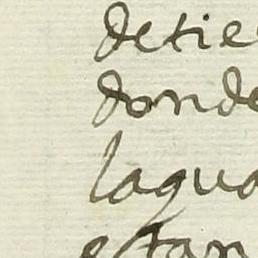 detie
donde
lagua
estan